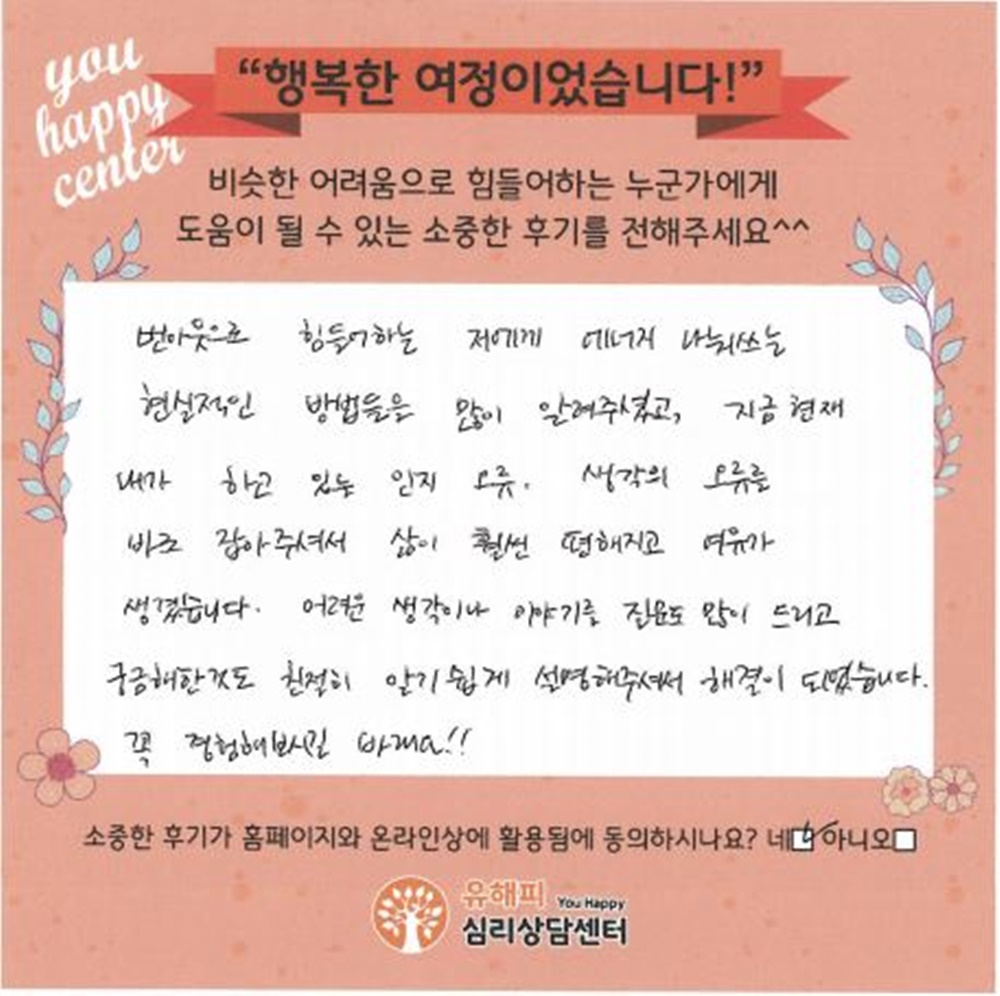 you
happy
center
“행복한 여정이었습니다!”
비슷한 어려움으로 힘들어하는 누군가에게
도움이 될 수 있는 소중한 후기를 전해주세요^^
번아웃으로 힘들어하는 저에게 에너지 나눠쓰는
현실적인 방법들을 많이 알려주셨고, 지금 현재
내가 하고 있는 인지 오류, 생각의 오류를
바로 잡아주셔서 삶이 훨씬 편해지고 여유가
생겼습니다. 어려운 생각이나 이야기를 질문도 많이 드리고
궁금해한것도 친절히 알기쉽게 설명해주셔서 해결이 되었습니다.
꼭 경험해보시길 바래요!!
소중한 후기가 홈페이지와 온라인상에 활용됨에 동의하시나요? 네 아니오
유해피 You Happy
심리상담센터